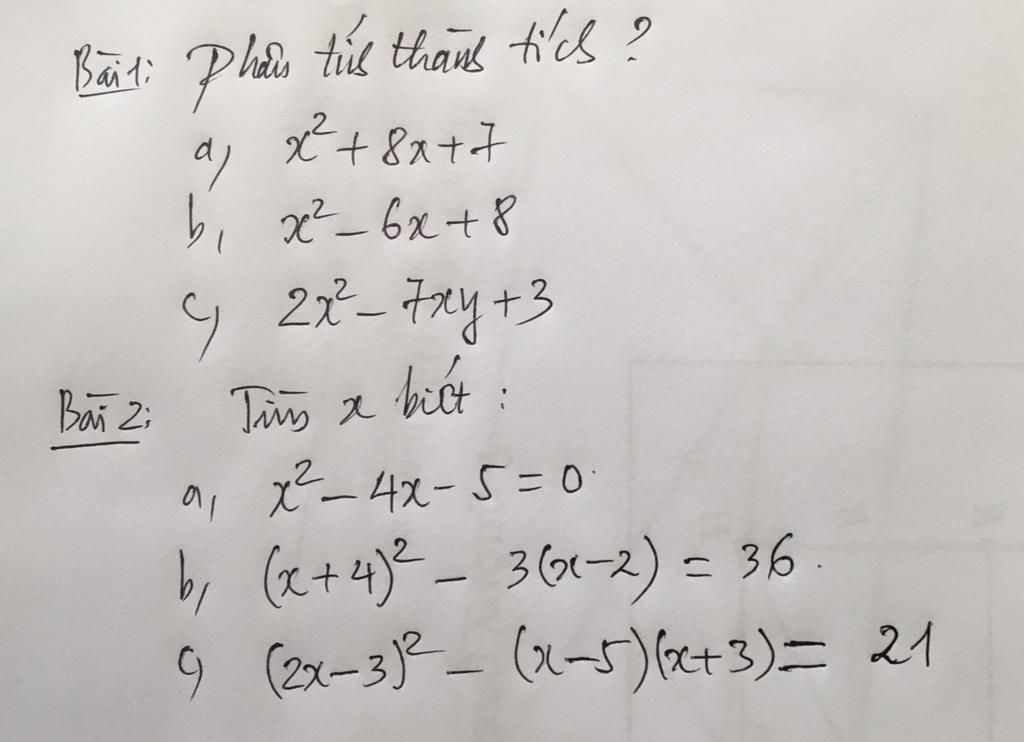 Bài 1: Phân tích thành tích ?
a, x² + 8x + 7
b, x² - 6x + 8
c, 2x² - 7xy + 3
Bài 2: Tìm x biết :
a, x² - 4x - 5 = 0.
b, (x + 4)² - 3(x - 2) = 36.
c, (2x - 3)² - (x - 5)(x + 3) = 21